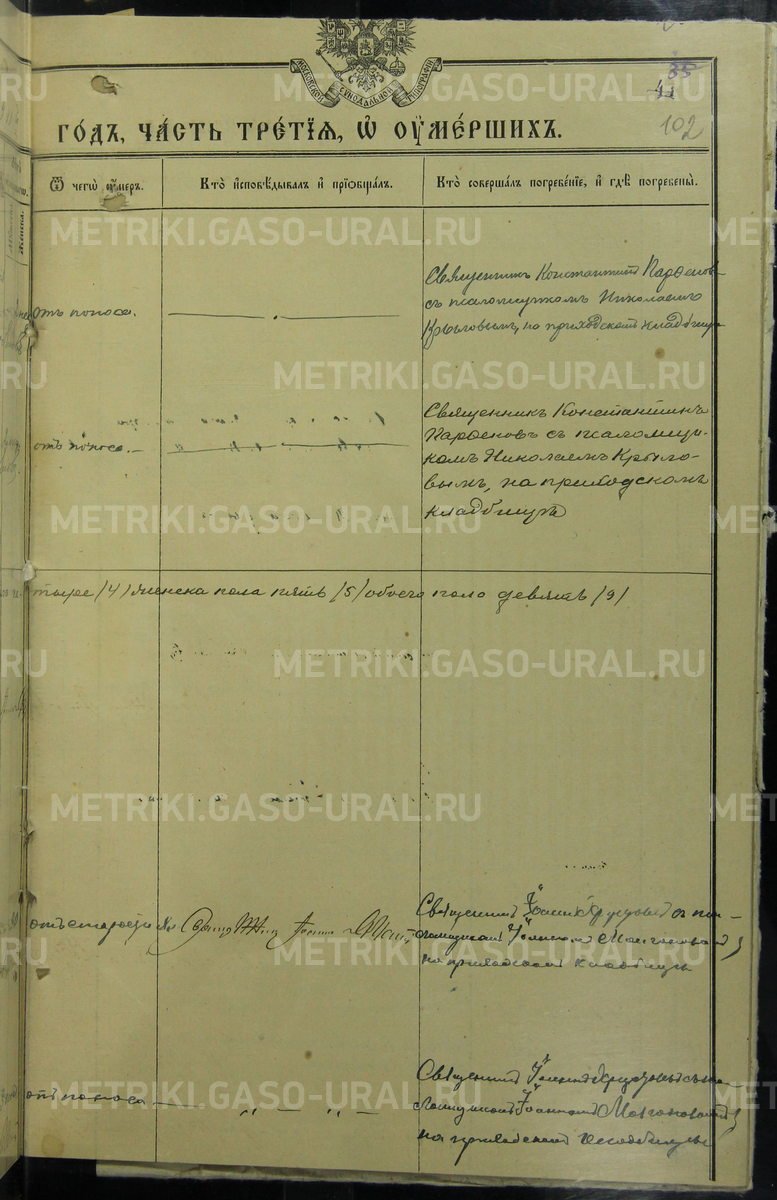 МОСКОВСКОЙ СѴНОДАЛЬНОЙ ТѴПОГРАФІИ
35
102
ГО́ДЪ, ЧА́СТЬ ТРЕ́ТЇѦ, Ѡ҆ ОУ҆МЕ́РШИХЪ.
Ѿ чегѡ̀ ᲂу҆́меръ.
Кто̀ и҆сповѣ́дывалъ и҆ прїѻбща́лъ.
Кто̀ соверша́лъ погребе́нїе, и҆ гдѣ̀ погребены̀.
отъ поноса.
Священникъ Константинъ Парѳенов
съ псаломщикомъ Николаемъ
Крыловымъ, на приходскомъ кладбищѣ
отъ поноса.
Священникъ Константинъ
Парѳеновъ съ псаломщи-
комъ Николаемъ Крыло-
вымъ, на приходскомъ
кладбищѣ
тыре /4/ женска пола пять /5/ обоего пола девять /9/
отъ старости
Священникъ Іоаннъ съ пса-
ломщикомъ Іоанномъ
на приходскомъ кладбищѣ
отъ поноса
Священникъ Іоаннъ съ пса-
ломщикомъ Іоанномъ
на приходскомъ кладбищѣ
METRIKI.GASO-URAL.RU